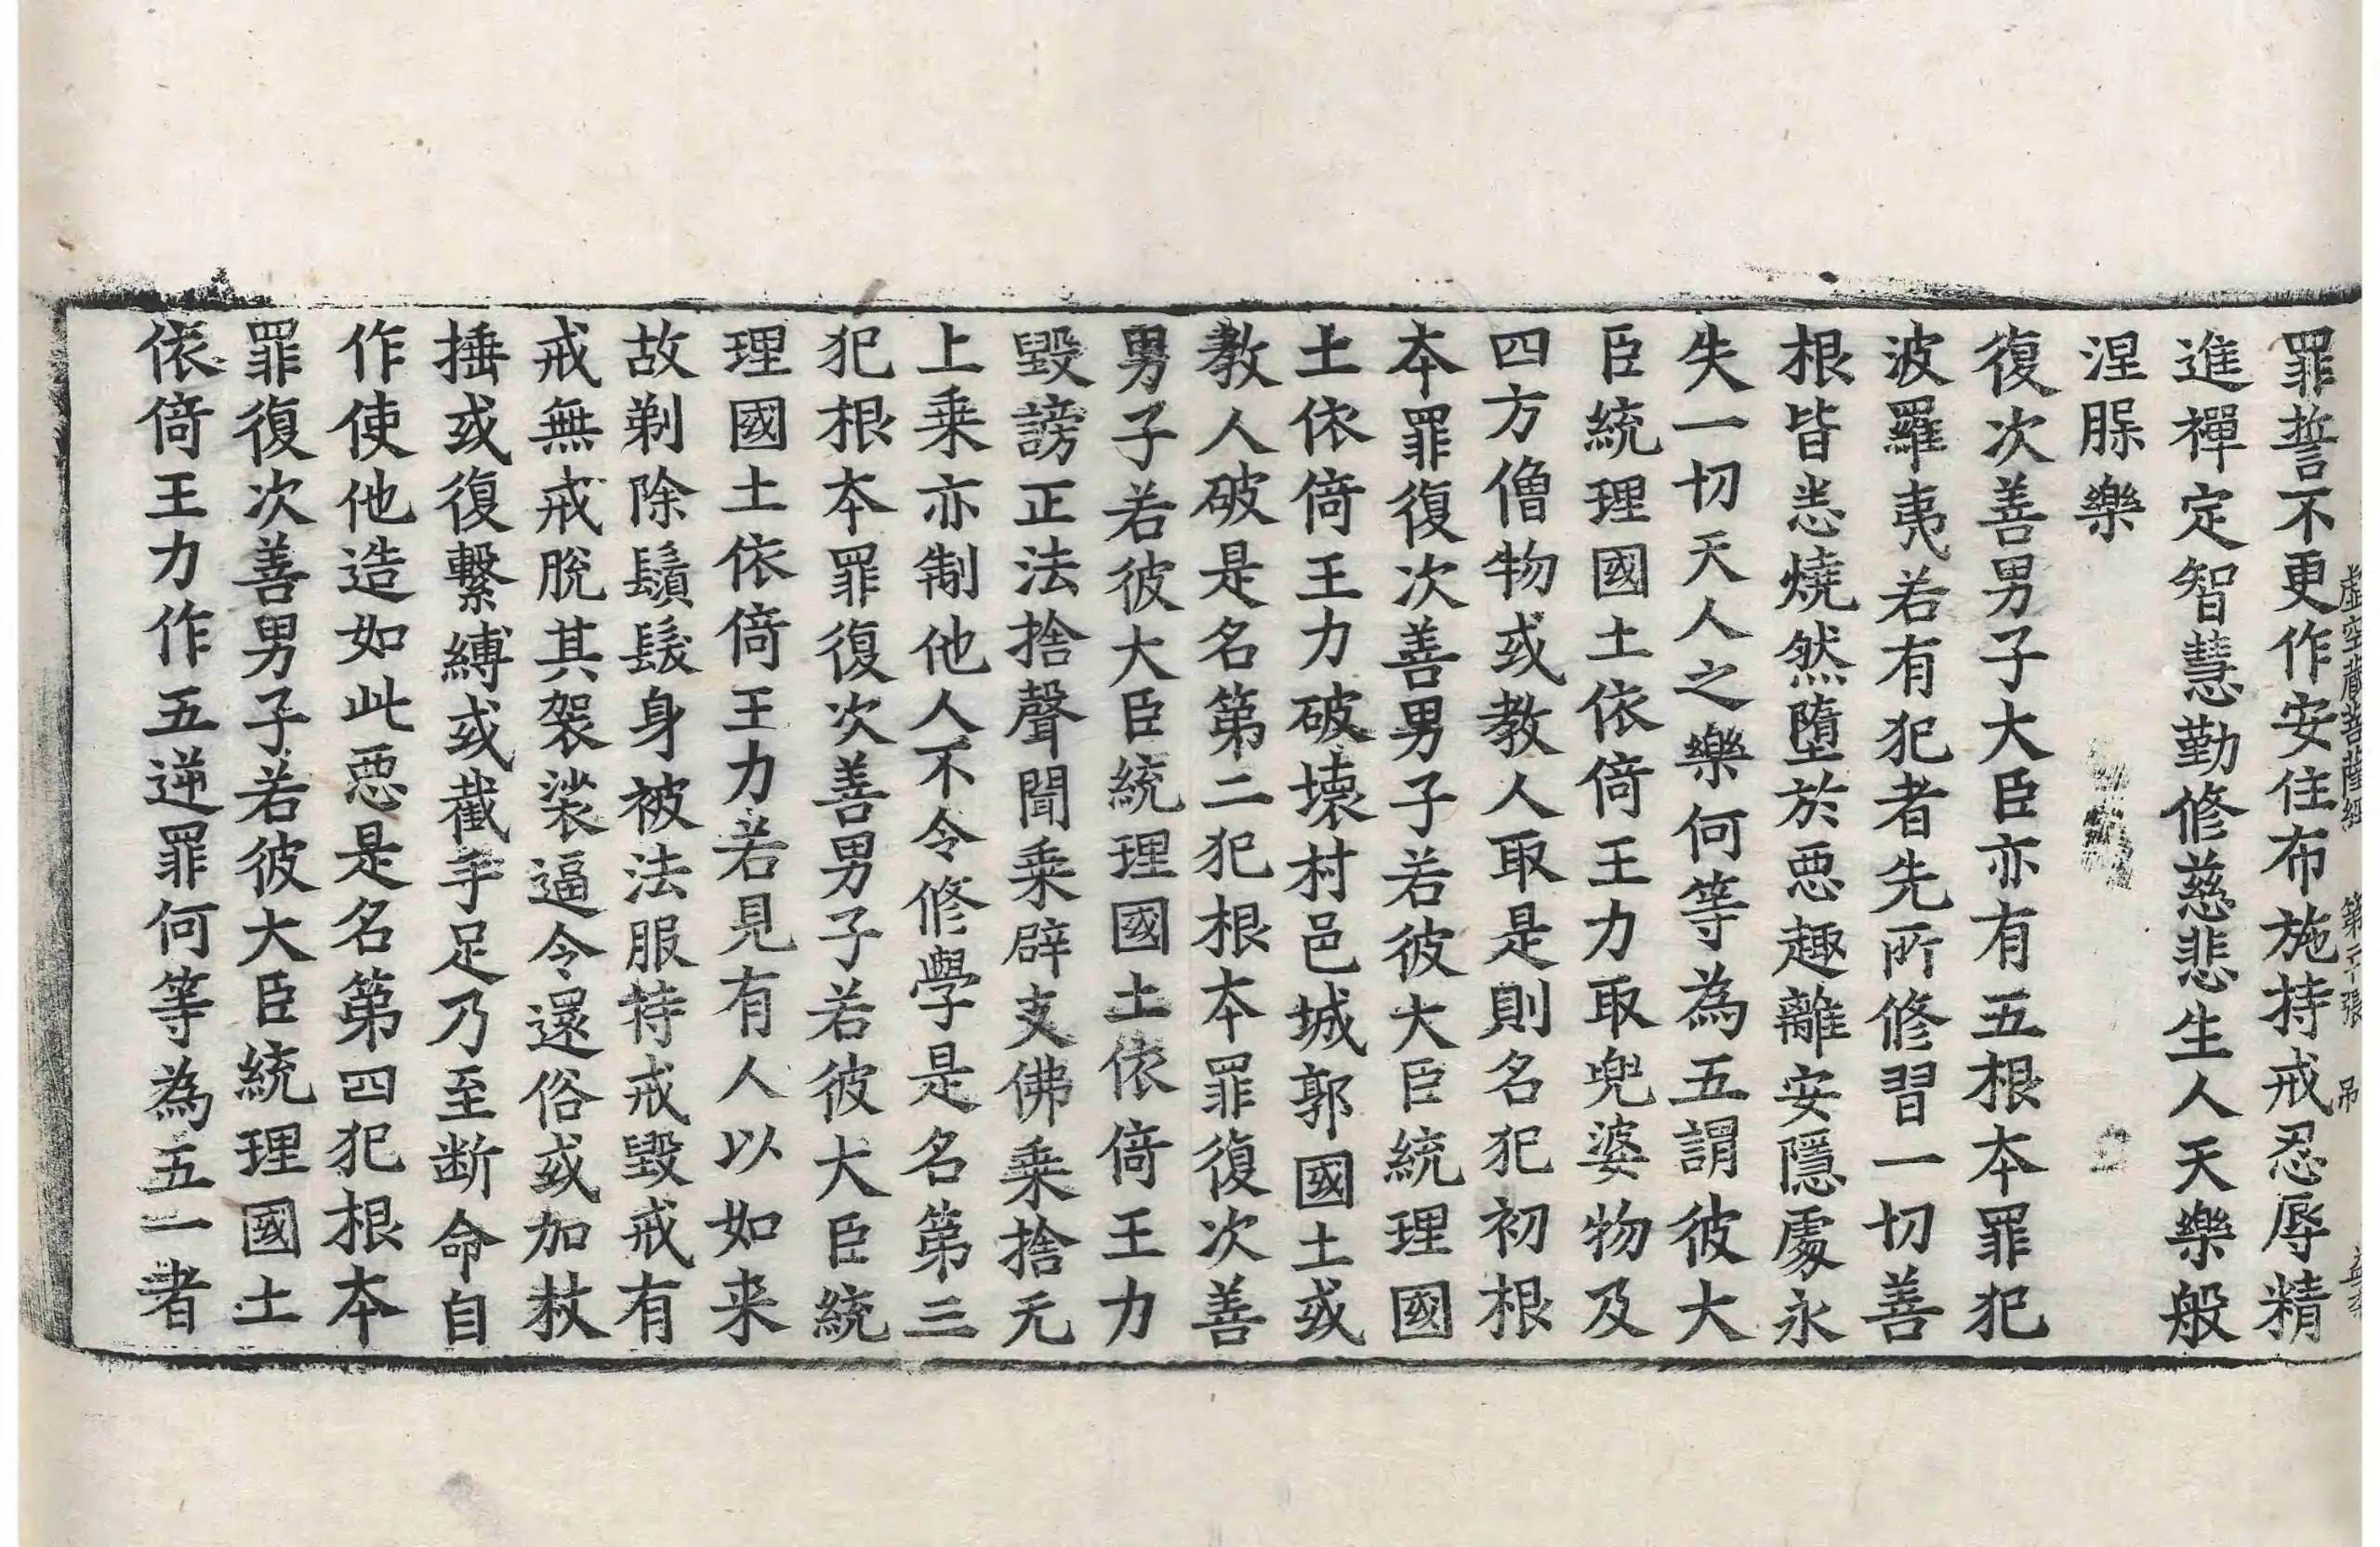 罪誓不更作安住布施持戒忍辱精
虛空藏菩薩經 第 張
進禪定智慧勤修慈悲生人天樂般
涅脲樂
復次善男子大臣亦有五根本罪犯
波羅夷若有犯者先所修習一切善
根皆悉燒然墮於惡趣離安隱處永
失一切天人之樂何等為五謂彼大
臣統理國土依倚王力取兜婆物及
四方僧物或教人取是則名犯初根
本罪復次善男子若彼大臣統理國
土依倚王力破壞村邑城郭國土或
教人破是名第二犯根本罪復次善
男子若彼大臣統理國土依倚王力
毀謗正法捨聲聞乘辟支佛乘捨无
上乘亦制他人不令修學是名第三
犯根本罪復次善男子若彼大臣統
理國土依倚王力若見有人以如来
故剃除鬚髮身被法服持戒毀戒有
戒無戒脫其袈裟逼令還俗或加杖
捶或復繫縛或截手足乃至断命自
作使他造如此惡是名第四犯根本
罪復次善男子若彼大臣統理國土
依倚王力作五逆罪何等為五一者